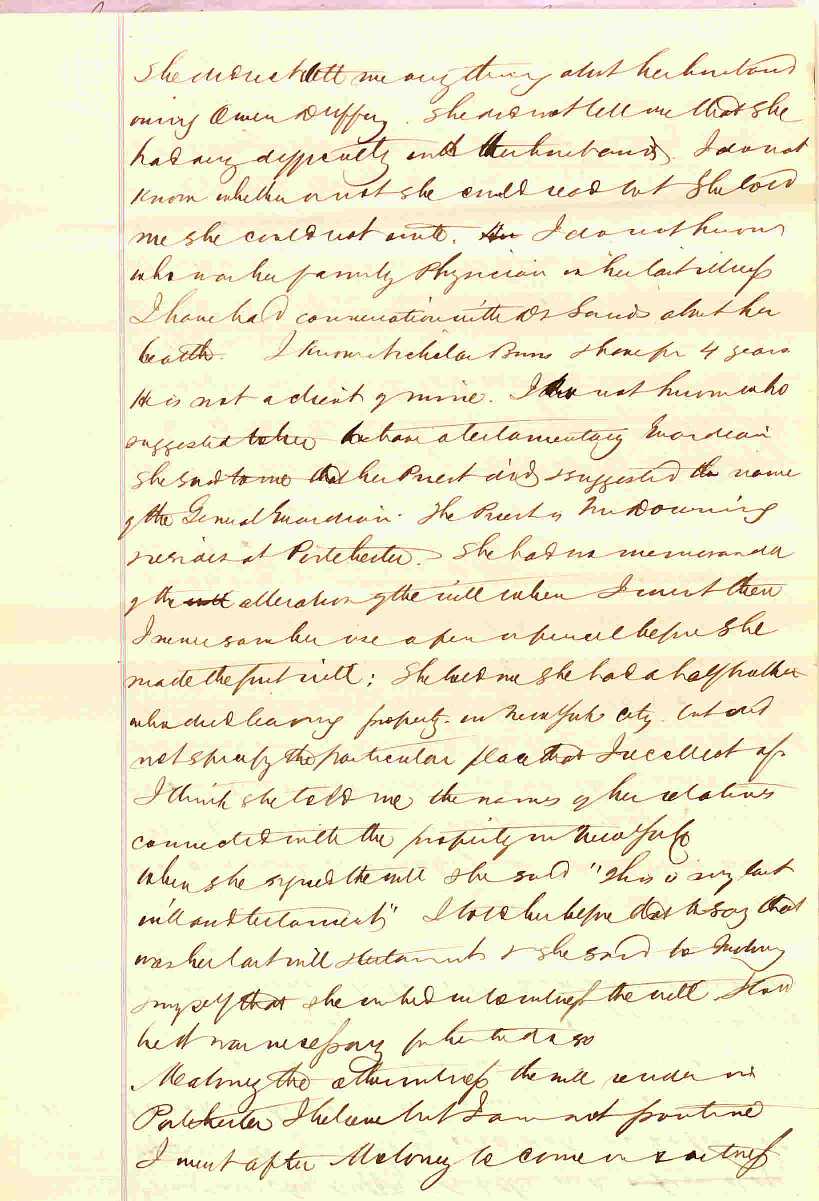 She did not tell me anything abut her husband
owing Owen Duffey. She did not tell me that she
had any difficulty with her husband. I do not
know whether or not she could read but She told
me she could not write. I do not know
who was her family Physician in her last illness
I have had conversation with Dr Sands abut her
health. I know Nicholas Burns & have for 4 years
He is not a client of mine. I do not know who
suggested to her to have a testamentary Guardian
She said to me that her Priest did & suggested the name
of the General Guardian. The Priest is Mr Downing
resides at Portchester. She had no memoranda
of the will alteration of the will when I went there
I never saw her use a pen or pencil before she
made the first will; She told me she had a half brother
who died leaving property in New York city but did
not specify the particular place that I recollect of
I think she told me the names of her relatives
connected with the property in New York
When she signed the will she said "this is my last
will and testament" I told her before that to say that
was her last will & testament & she said to Maloney
& myself that she wished us to witness the will I told
her it was necessary for her to do so
Maloney the other witness the will resides in
Portchester I believe but I am not positive
I went after Maloney to come in & witness